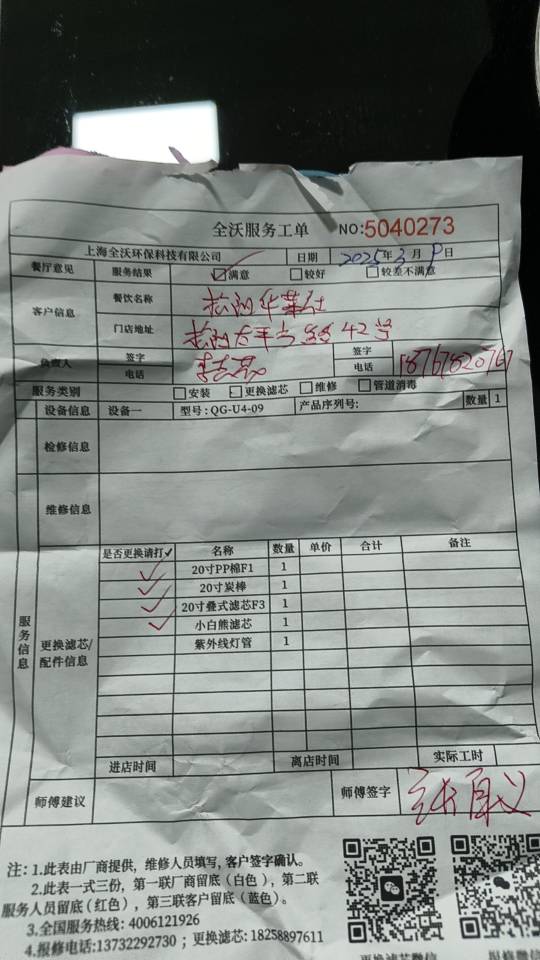 全沃服务工单 NO:5040273
上海全沃环保科技有限公司 日期 2025年3月9日
餐厅意见 服务结果 ☑满意 □较好 □较差不满意
客户信息 餐饮名称 松阳华莱士
门店地址 松阳 42号
负责人 签字 签字
电话 电话
服务类别 □安装 □更换滤芯 □维修 □管道消毒
设备信息 设备一 型号: QG-U4-09 产品序列号: 数量 1
检修信息
维修信息
服务信息
更换滤芯/配件信息
是否更换请打✓ 名称 数量 单价 合计 备注
✓ 20寸PP棉F1 1
✓ 20寸炭棒 1
✓ 20寸叠式滤芯F3 1
✓ 小白熊滤芯 1
紫外线灯管 1
进店时间 离店时间 实际工时
师傅建议 师傅签字
注: 1.此表由厂商提供, 维修人员填写, 客户签字确认。
2.此表一式三份, 第一联厂商留底(白色), 第二联
服务人员留底(红色), 第三联客户留底(蓝色)。
3.全国服务热线: 4006121926
4.报修电话:13732292730 ; 更换滤芯: 18258897611
更换滤芯微信 报修微信